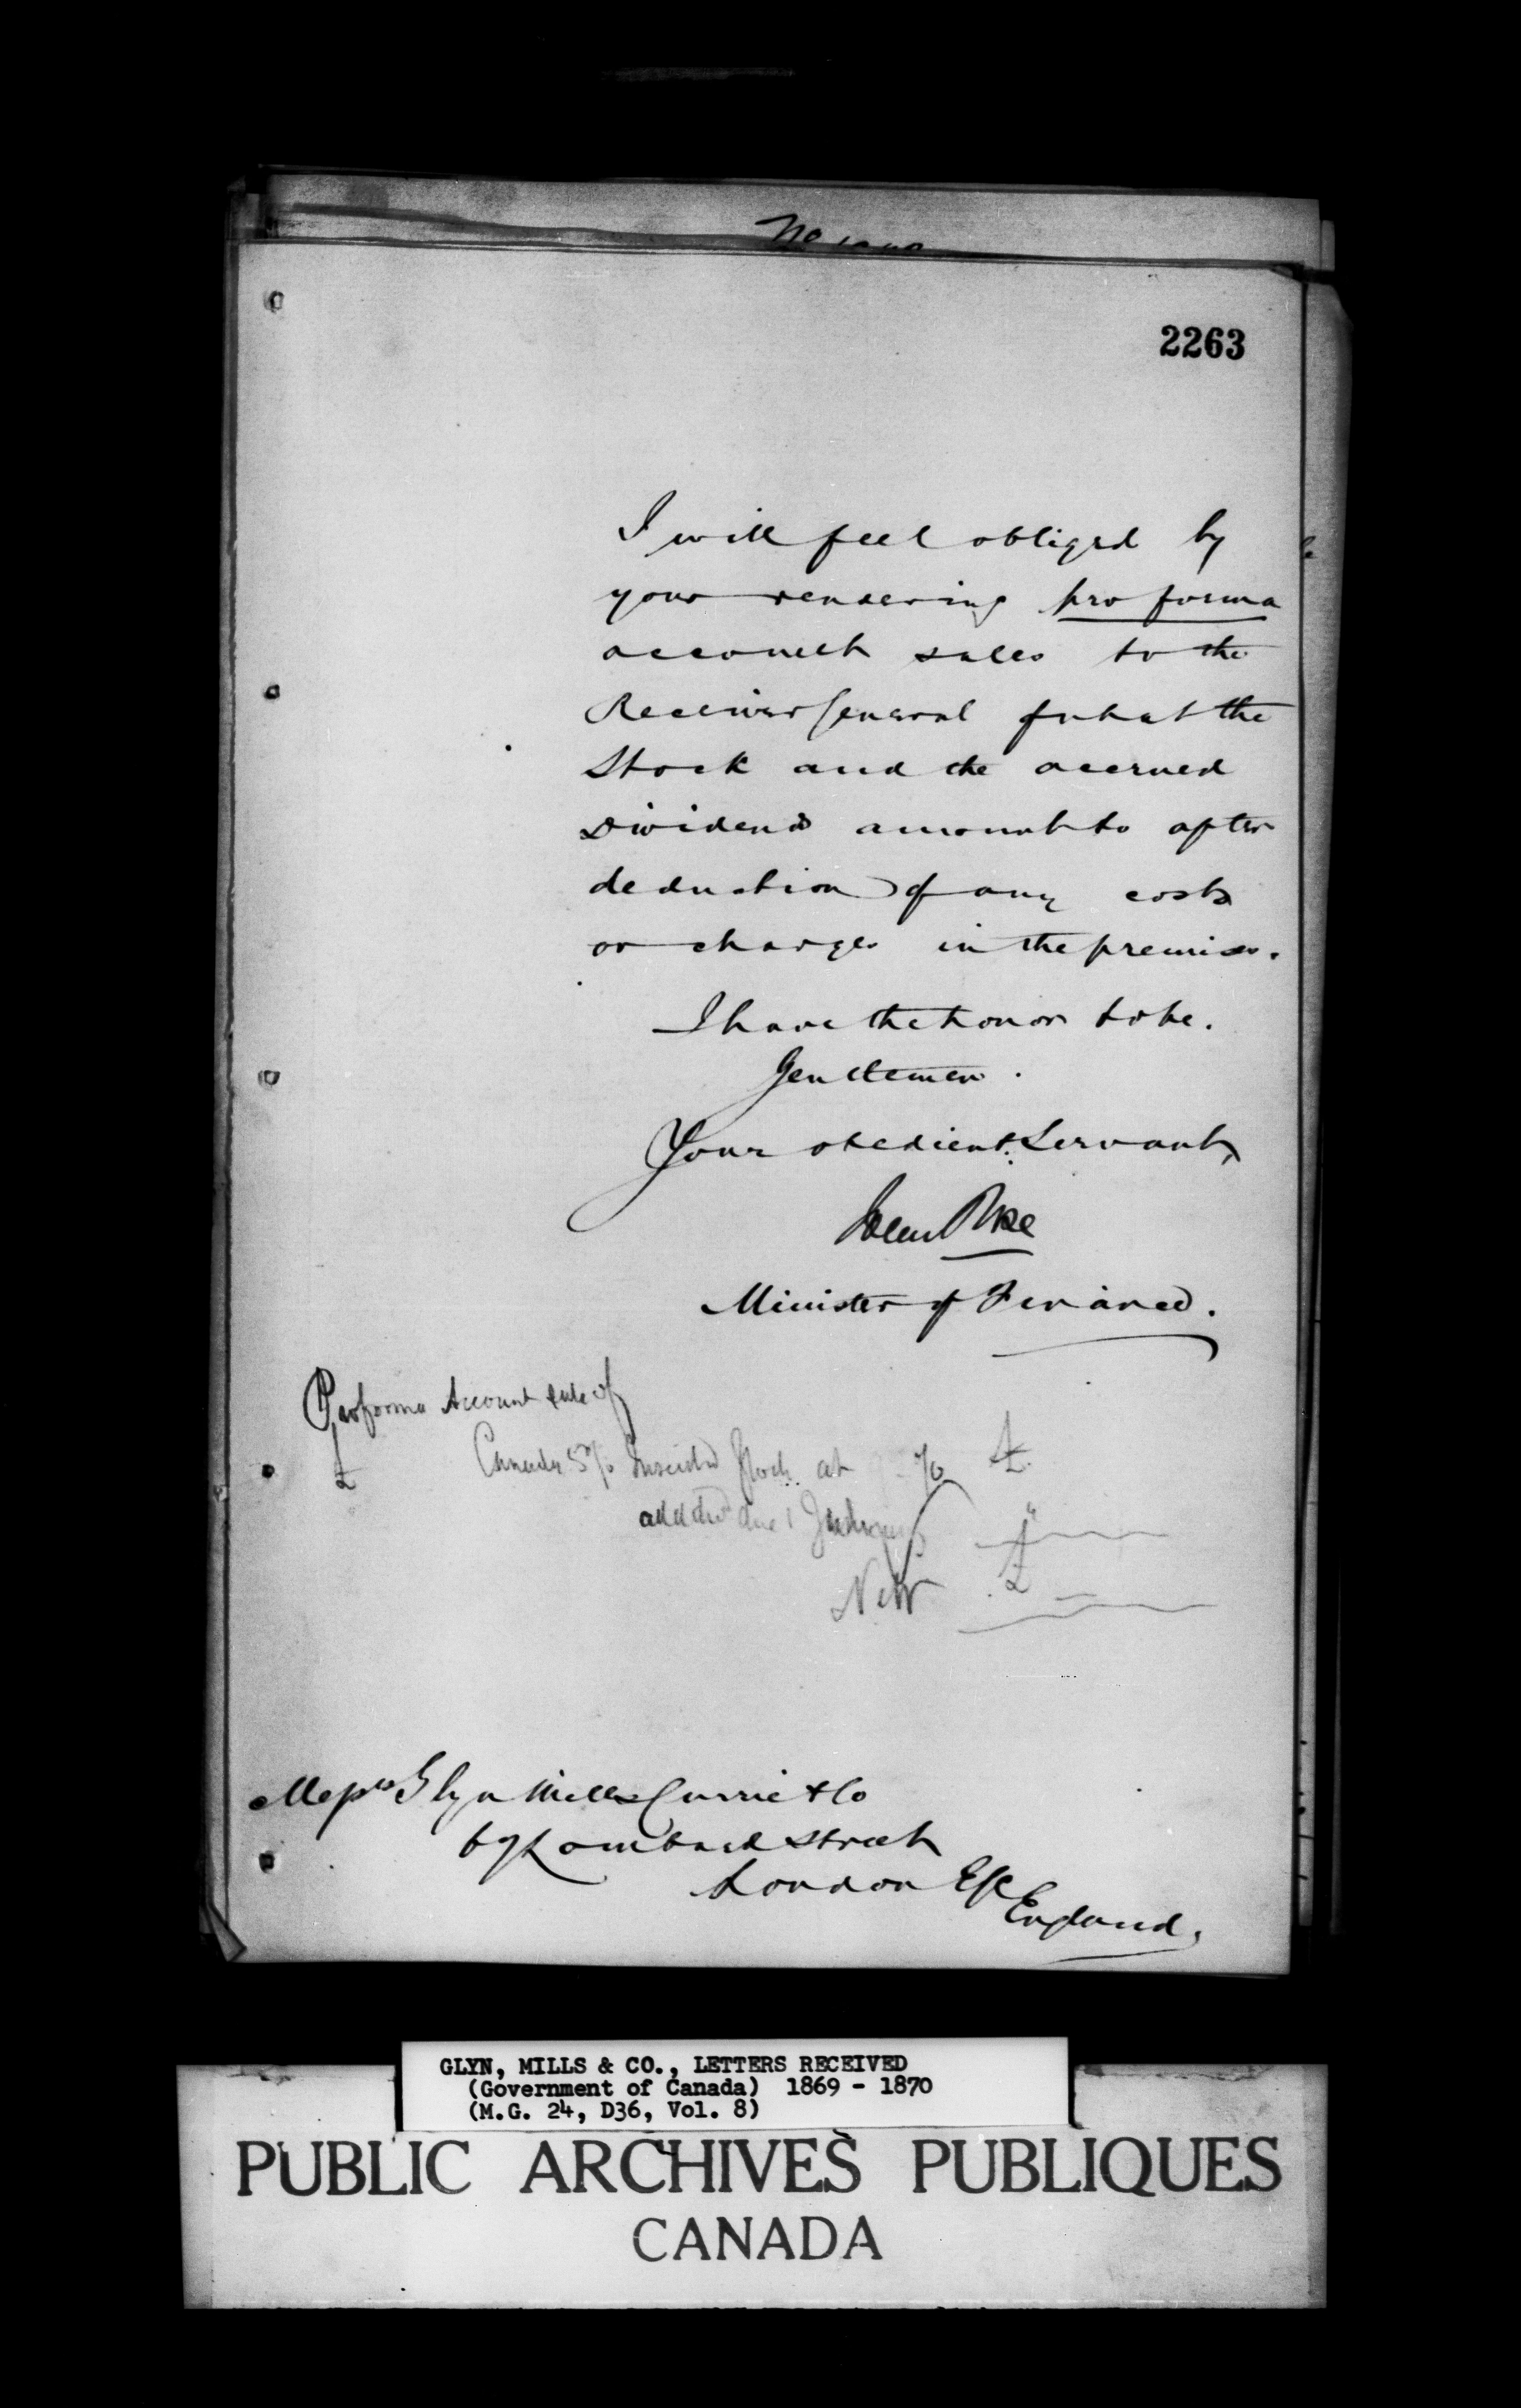 2263
I will feel obliged by
your rendering pro forma
account sales to the
Receiver General of what the
Stock and the accrued
Dividend amount to after
deduction of any costs
or charges in the premises.
I have the honor to be.
Gentlemen.
Your obedient Servant,
Minister of Finance.
Proforma Account Sale of
£ Canada 5% Inscribed Stock at % £
add div due 1 January "
Net £
Messrs Glyn Mills Currie & Co
67 Lombard Street
London EC
England.
GLYN, MILLS & CO., LETTERS RECEIVED
(Government of Canada) 1869 - 1870
(M.G. 24, D36, Vol. 8)
PUBLIC ARCHIVES PUBLIQUES
CANADA